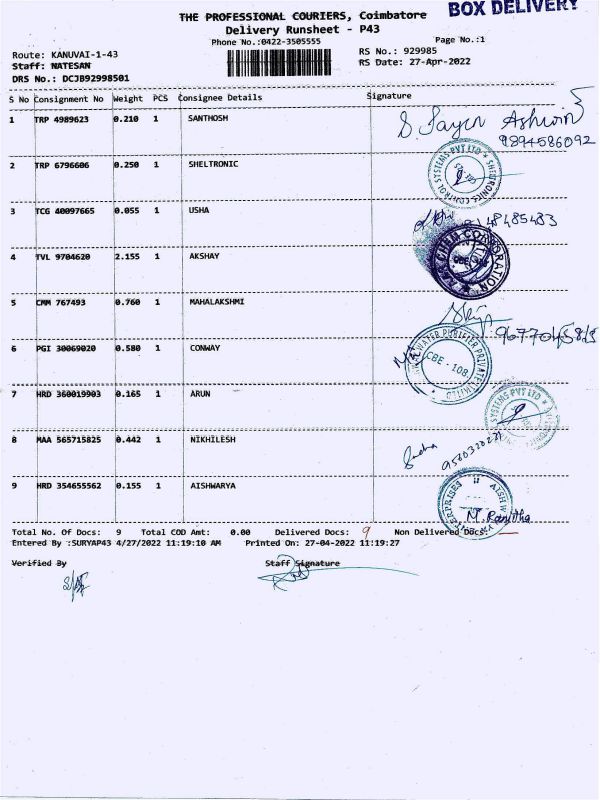 BOX DELIVERY
THE PROFESSIONAL COURIERS, Coimbatore
Delivery Runsheet - P43
Phone No.:0422-3505555
Page No.:1
Route: KANUVAI-1-43
RS No.: 929985
Staff: NATESAN
RS Date: 27-Apr-2022
DRS No.: DCJB92998501
S No Consignment No Weight PCS Consignee Details Signature
1 TRP 4989623 0.210 1 SANTHOSH
9894586092
2 TRP 6796606 0.250 1 SHELTRONIC
3 TCG 40097665 0.055 1 USHA
4 TVL 9704620 2.155 1 AKSHAY
5 CMM 767493 0.760 1 MAHALAKSHMI
6 PGI 30069020 0.580 1 CONWAY
CBE - 108.
7 HRD 360019903 0.165 1 ARUN
8 MAA 565715825 0.442 1 NIKHILESH
9 HRD 354655562 0.155 1 AISHWARYA
Total No. Of Docs: 9 Total COD Amt: 0.00 Delivered Docs: 9 Non Delivered Docs:
Entered By :SURYAP43 4/27/2022 11:19:10 AM Printed On: 27-04-2022 11:19:27
Verified By Staff Signature